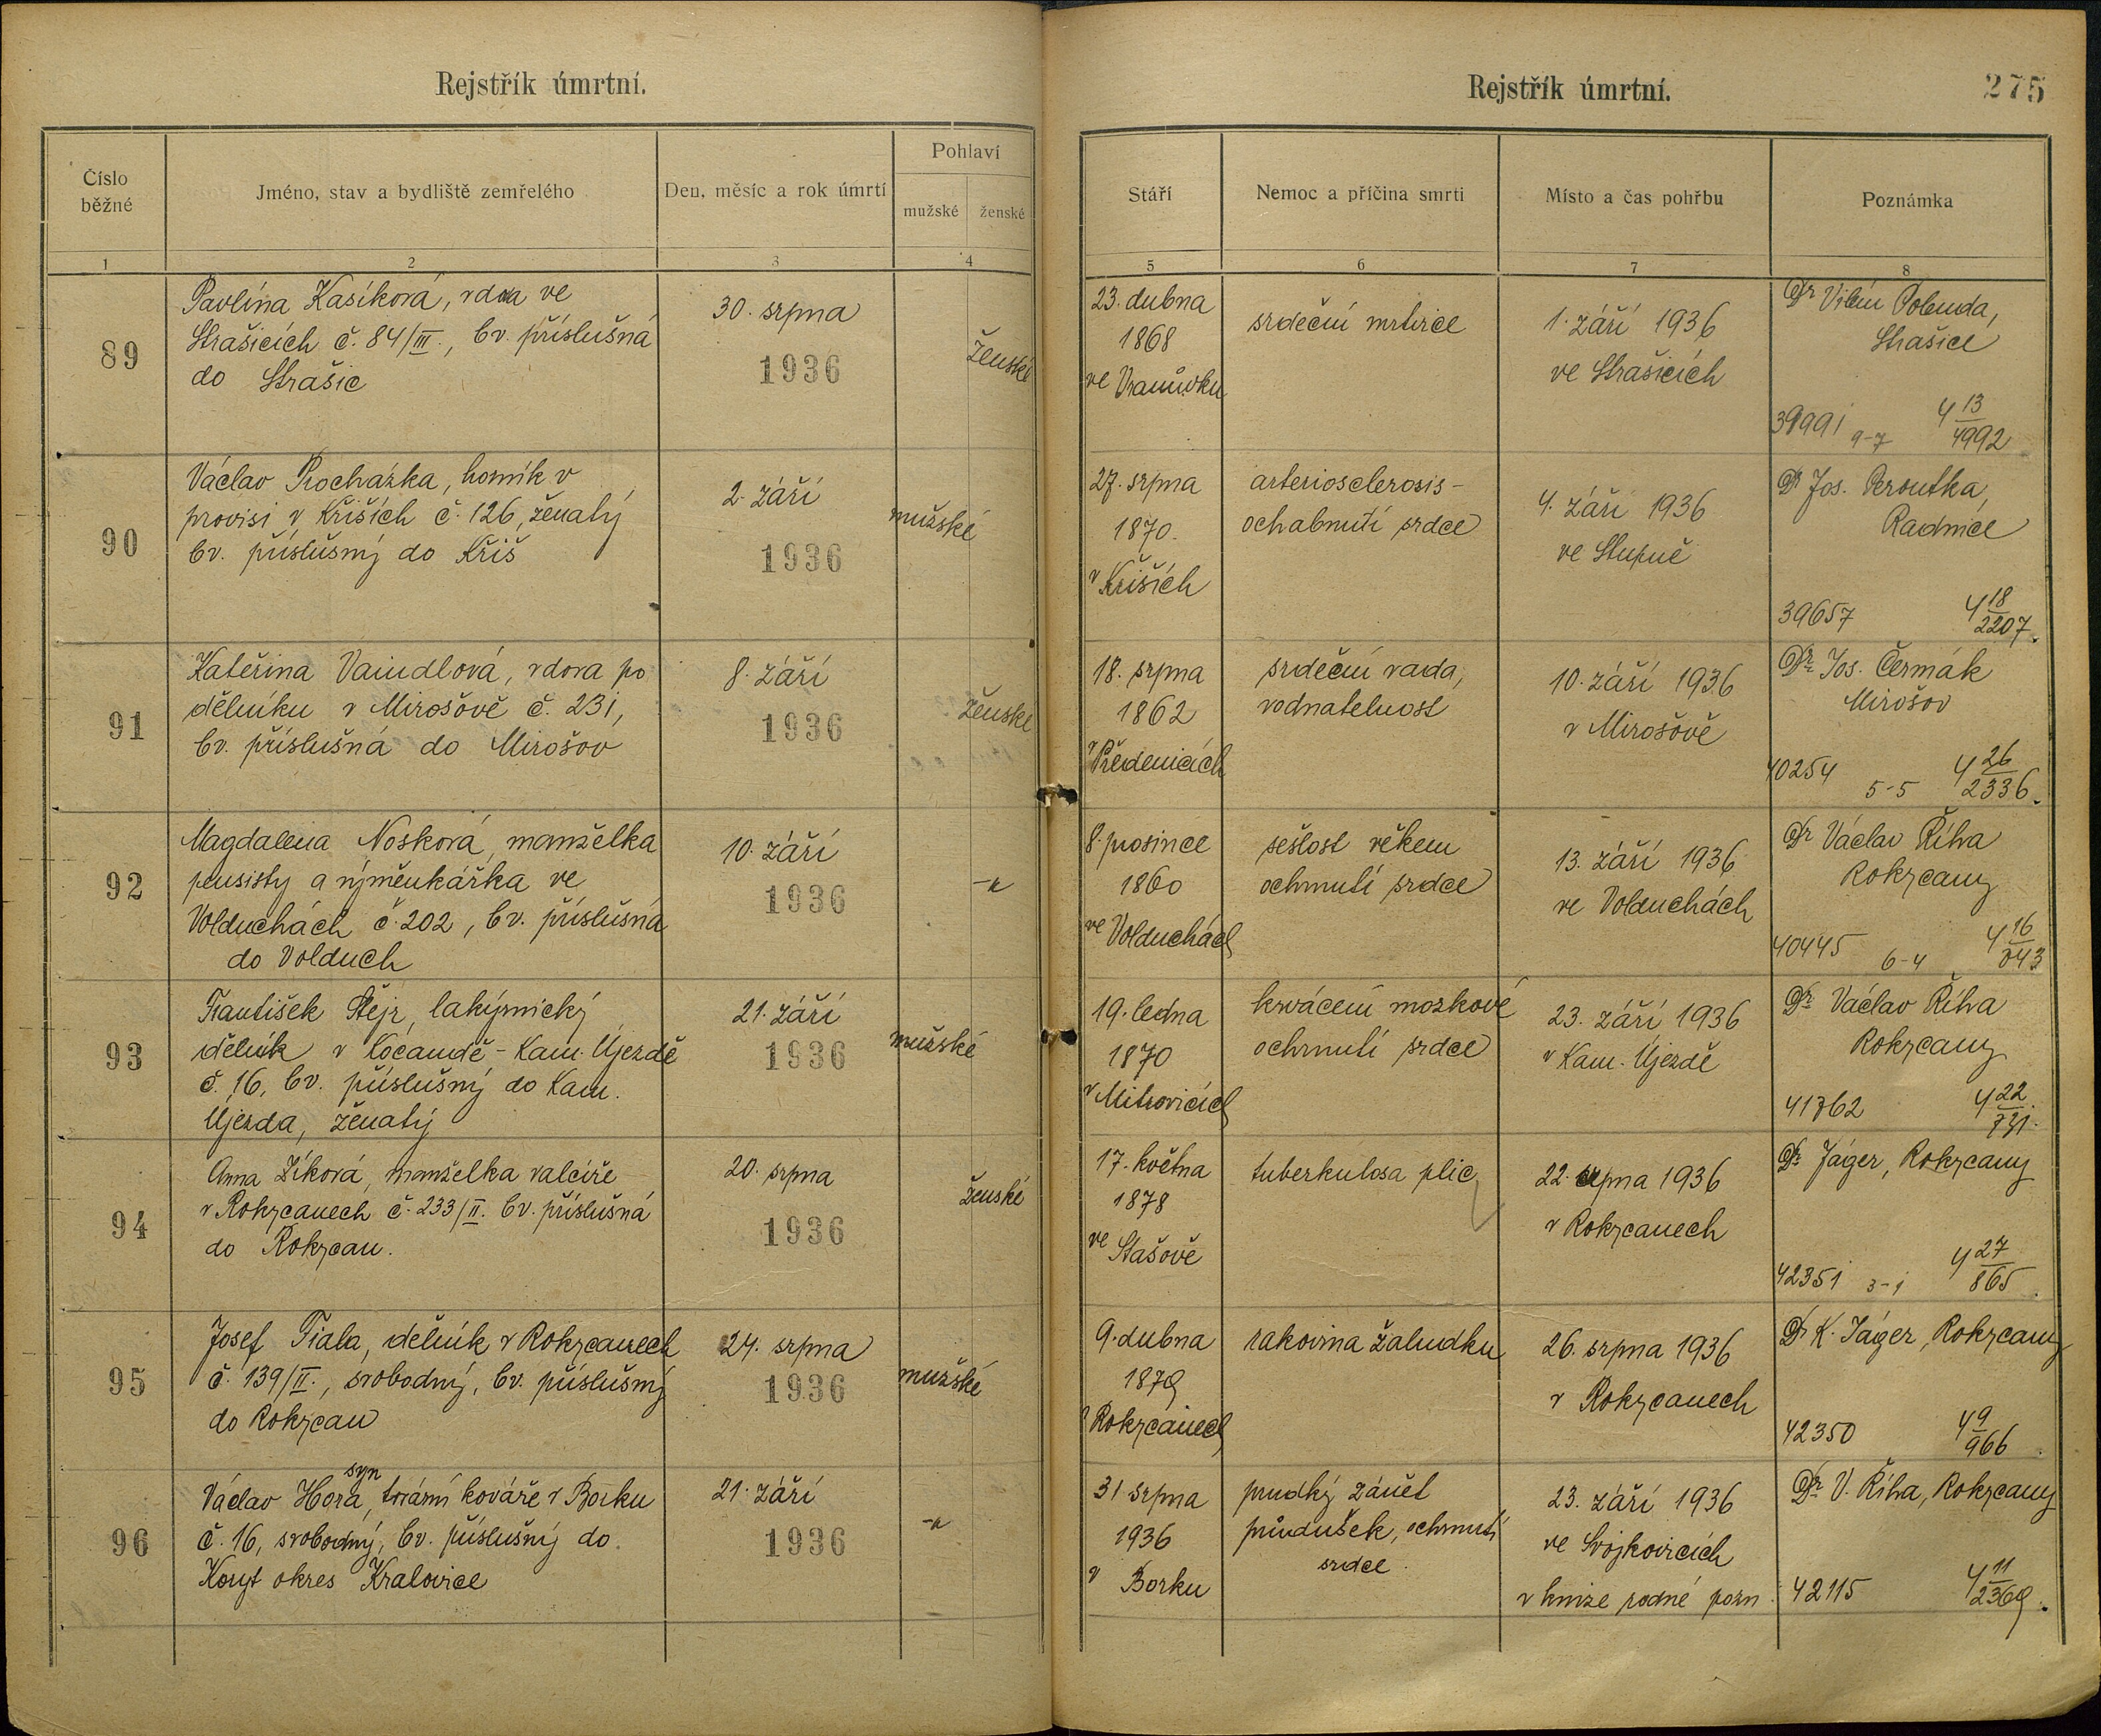 Rejstřík úmrtní.
Číslo běžné
Jméno, stav a bydliště zemřelého
Den, měsíc a rok úmrtí
Pohlaví
mužské
ženské
1
2
3
4
89
Pavlína Kasíková, vdova ve
Strašicích č. 84/III., čv. příslušná
do Strašic
30. srpna
1936
ženské
90
Václav Procházka, horník v
provisi v Křiších č. 126, ženatý
čv. příslušný do Kříš
2. září
1936
mužské
91
Kateřina Vaindlová, vdova po
dělníku v Mirošově č. 231,
čv. příslušná do Mirošov
8. září
1936
ženské
92
Magdalena Nosková, manželka
pensisty a výměnkářka ve
Volduchách č. 202, čv. příslušná
do Volduch
10. září
1936
-"
93
František Štejr, lakýrnický
dělník v Kocandě - Kam. Újezdě
č. 16, čv. příslušný do Kam.
Újezda, ženatý
21. září
1936
mužské
94
Anna Zíková, manželka valcíře
v Rokycanech č. 233/II. čv. příslušná
do Rokycan.
20. srpna
1936
ženské
95
Josef Fiala, dělník v Rokycanech
č. 139/II., svobodný, čv. příslušný
do Rokycan
24. srpna
1936
mužské
96
syn
Václav Hora, továrn. kováře v Borku
č. 16, svobodný, čv. příslušný do
Koryt okres Kralovice
21. září
1936
-"
Rejstřík úmrtní.
275
Stáří
Nemoc a příčina smrti
Místo a čas pohřbu
Poznámka
5
6
7
8
23. dubna
1868
ve Vranůvku
srdeční mrtvice
1. září 1936
ve Strašicích
Dr Vilém Pobuda,
Strašice
39991 9-7 4 13/4992
27. srpna
1870.
v Křiších
arteriosclerosis -
ochabnutí srdce
4. září 1936
ve Stupně
Dr Jos. Peroutka,
Radnice
39657 4 18/2207.
18. srpna
1862
v Předenicích
srdeční vada,
vodnatelnost
10. září 1936
v Mirošově
Dr. Jos. Čermák
Mirošov
40254 5-5 4 26/2336.
8. prosince
1860
ve Volduchách
sešlost věkem
ochrnutí srdce
13. září 1936
ve Volduchách
Dr Václav Říha
Rokycany
40445 6-4 4 16/843
19. ledna
1870
v Mitrovicích
krvácení mozkové
ochrnutí srdce
23. září 1936
v Kam. Újezdě
Dr. Václav Říha
Rokycany
41762 4 22/731.
17. května
1878
ve Stašově
tuberkulosa plic
22. srpna 1936
v Rokycanech
Dr. Jäger, Rokycany
42351 3-1 4 27/865.
9. dubna
1879
Rokycanech
rakovina žaludku
26. srpna 1936
v Rokycanech
Dr K. Jäger, Rokycany
42350 4 9/966.
31 srpna
1936
v Borku
prudký zánět
průdušek, ochrnutí
srdce.
23. září 1936
ve Svojkovicích
v knize rodné pozn.
Dr. V. Říha, Rokycany
42115 4 11/2369.